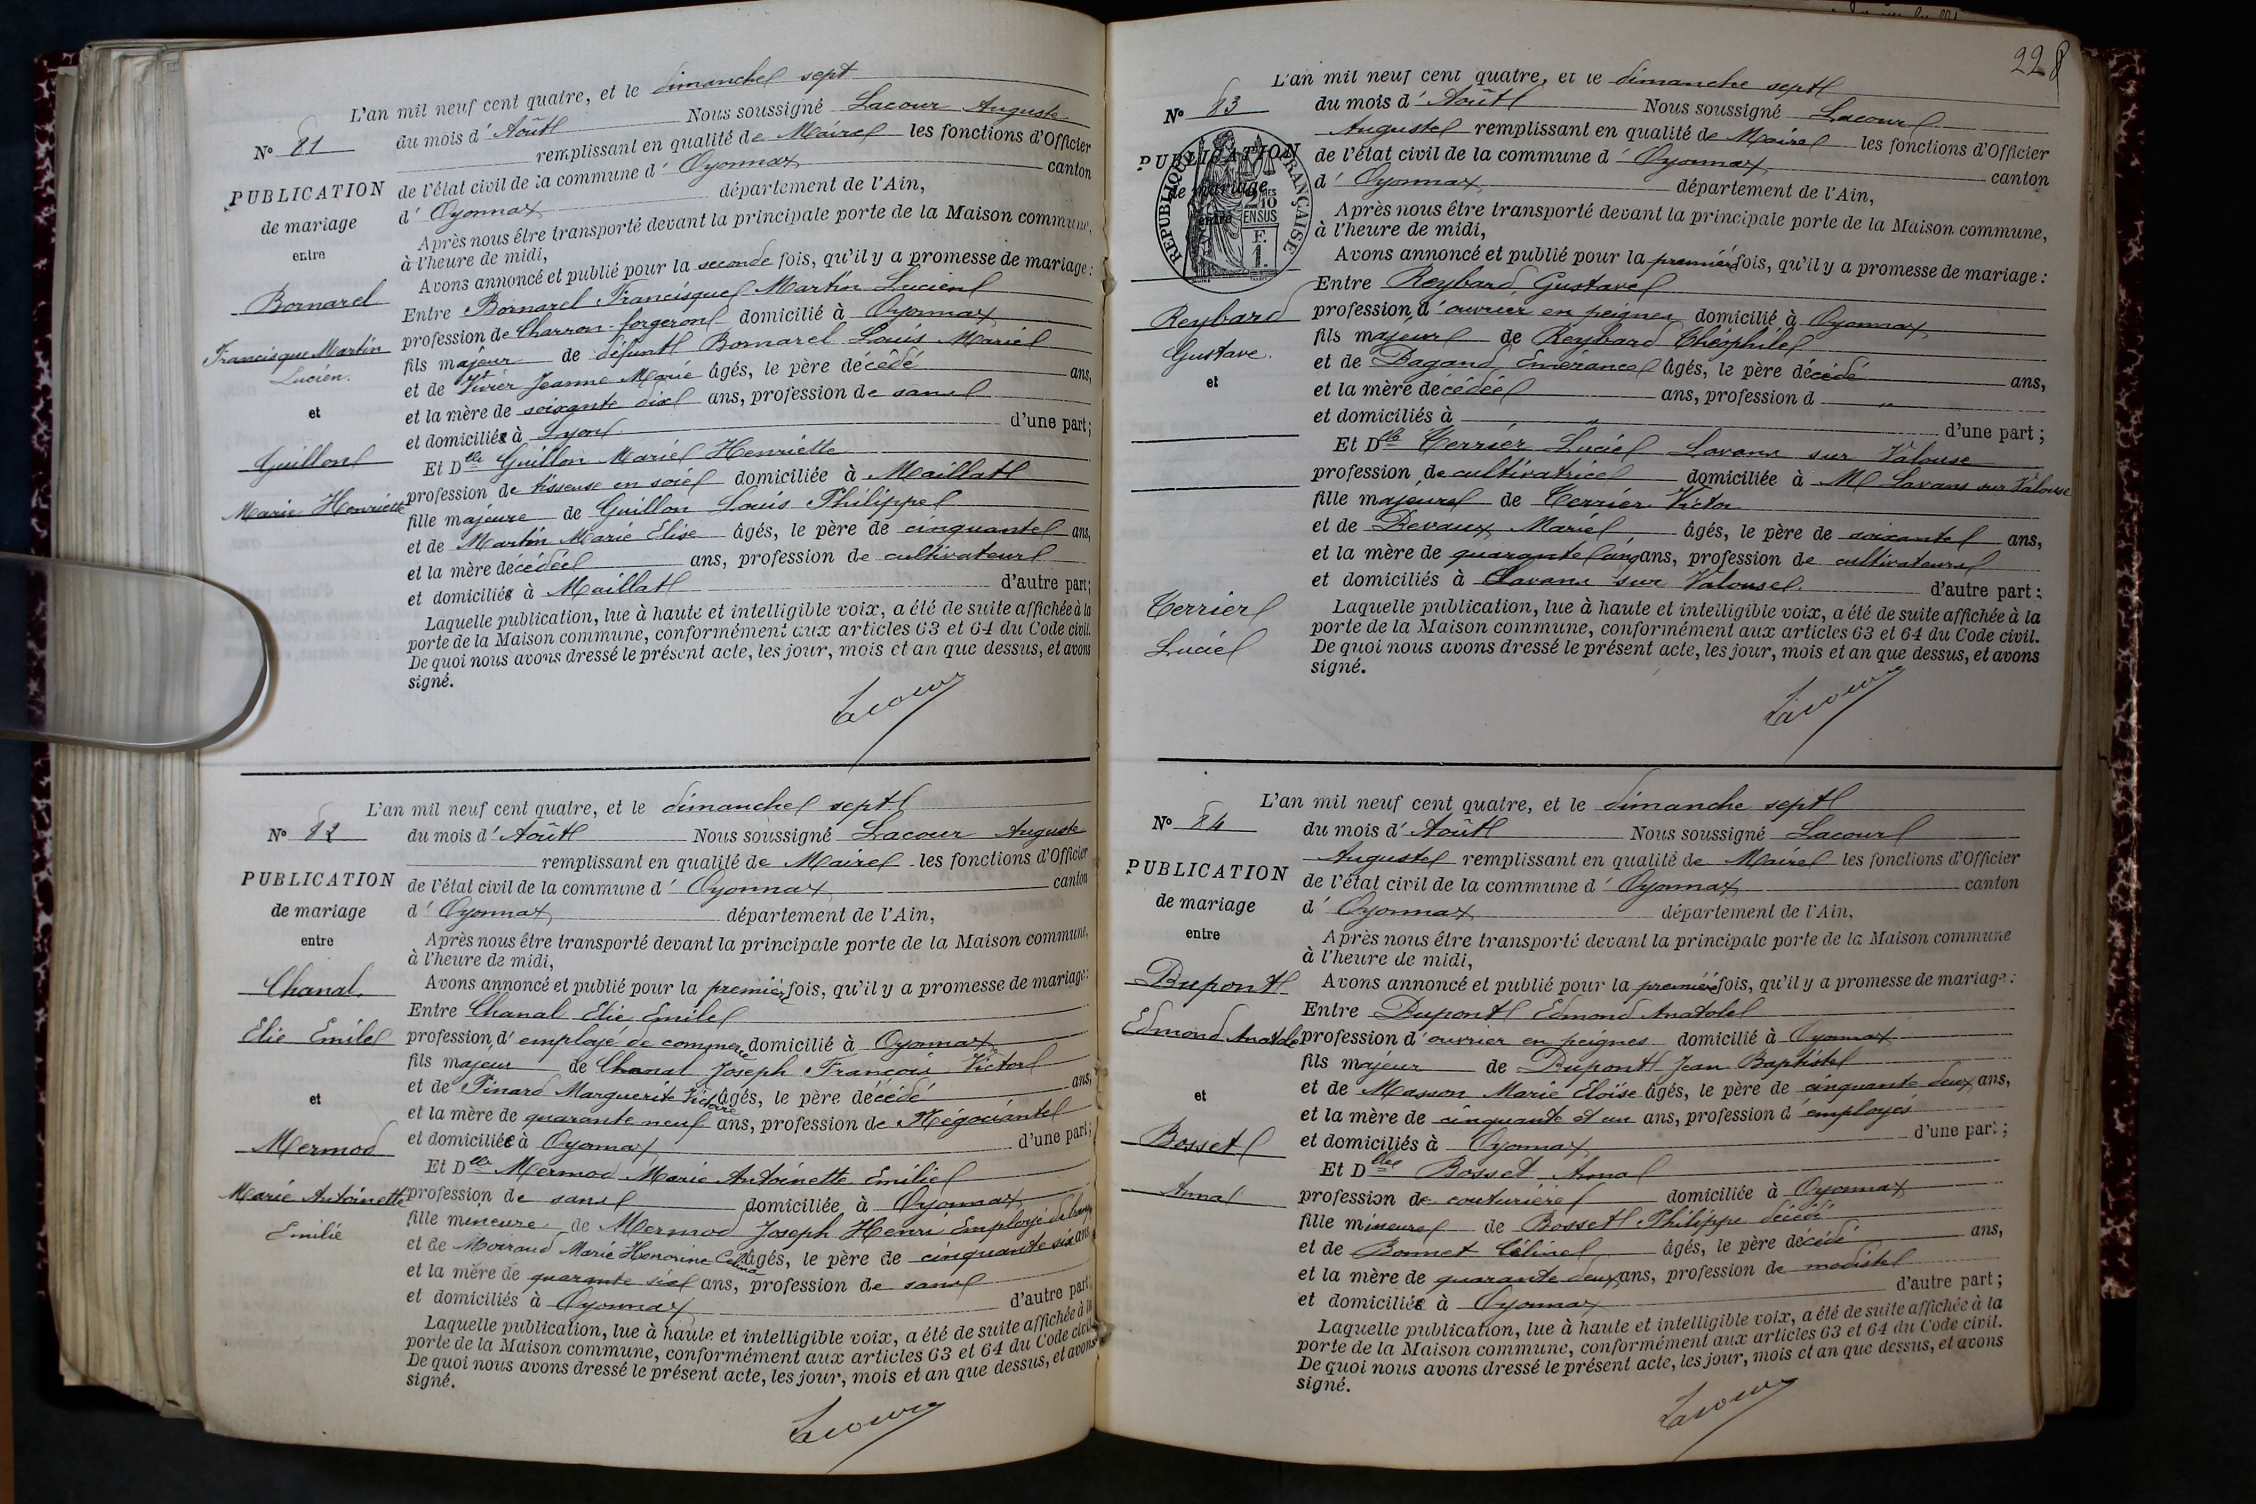 L'an mil neuf cent quatre, et le dimanche sept
N° 81
du mois d' Août Nous soussigné Lacour Auguste
remplissant en qualité de Maire les fonctions d'Officier
PUBLICATION
de l'état civil de la commune d' Oyonnax canton
de mariage
d' Oyonnax département de l'Ain,
entre
Après nous être transporté devant la principale porte de la Maison commune,
à l'heure de midi,
Avons annoncé et publié pour la seconde fois, qu'il y a promesse de mariage:
Bornarel
Entre Bornarel Francisque Martin Lucien
profession de Charron-forgeron domicilié à Oyonnax
Francisque Martin
Lucien.
fils majeur de défunt Bornarel Louis Marie
et de Vivier Jeanne Marie âgés, le père décédé ans,
et
et la mère de soixante dix ans, profession de sans
et domiciliée à Lyon d'une part;
Guillon
Et Dlle Guillon Marie Henriette
profession de tisseuse en soie domiciliée à Maillat
Marie Henriette
fille majeure de Guillon Louis Philippe
et de Martin Marie Elise âgés, le père de cinquante ans,
et la mère décédée ans, profession de cultivateur
et domiciliés à Maillat d'autre part;
Laquelle publication, lue à haute et intelligible voix, a été de suite affichée à la
porte de la Maison commune, conformément aux articles 63 et 64 du Code civil.
De quoi nous avons dressé le présent acte, les jour, mois et an que dessus, et avons
signé.
Lacour
L'an mil neuf cent quatre, et le dimanche sept
N° 82
du mois d' Août Nous soussigné Lacour Auguste
remplissant en qualité de Maire les fonctions d'Officier
PUBLICATION
de l'état civil de la commune d' Oyonnax canton
de mariage
d' Oyonnax département de l'Ain,
entre
Après nous être transporté devant la principale porte de la Maison commune,
à l'heure de midi,
Avons annoncé et publié pour la première fois, qu'il y a promesse de mariage:
Chanal
Entre Chanal Elie Emile
Elie Emile
profession d' employé de commerce domicilié à Oyonnax
fils majeur de Chanal Joseph François Victor
et de Pinard Marguerite Victoire âgés, le père décédé ans,
et
et la mère de quarante neuf ans, profession de Négociante
et domiciliée à Oyonnax d'une part;
Mermod
Et Dlle Mermod Marie Antoinette Emilie
Marie Antoinette
Emilie
profession de sans domiciliée à Oyonnax
fille mineure de Mermod Joseph Henri Employé de bureau
et de Moiraud Marie Honorine Celina âgés, le père de cinquante six ans
et la mère de quarante six ans, profession de sans
et domiciliés à Oyonnax d'autre part;
Laquelle publication, lue à haute et intelligible voix, a été de suite affichée à la
porte de la Maison commune, conformément aux articles 63 et 64 du Code civil.
De quoi nous avons dressé le présent acte, les jour, mois et an que dessus, et avons
signé.
Lacour
228
L'an mil neuf cent quatre, et le dimanche sept
N° 83
du mois d' Août Nous soussigné Lacour
Auguste remplissant en qualité de Maire les fonctions d'Officier
PUBLICATION
de l'état civil de la commune d' Oyonnax canton
de mariage
d' Oyonnax département de l'Ain,
entre
RÉPUBLIQUE FRANÇAISE
2/10
EN SUS
F.
1.
Après nous être transporté devant la principale porte de la Maison commune,
à l'heure de midi,
Avons annoncé et publié pour la première fois, qu'il y a promesse de mariage:
Entre Reybard Gustave
Reybard
profession d' ouvrier en peignes domicilié à Oyonnax
Gustave.
fils majeur de Reybard Théophile
et de Dagand Emérance âgés, le père décédé ans,
et
et la mère décédée ans, profession d "
et domiciliés à " d'une part;
Et Dlle Terrier Lucie Lavans sur Valouse
profession de cultivatrice domiciliée à Lavans sur Valouse
fille majeure de Terrier Victor
et de Devaux Marie âgés, le père de soixante ans,
et la mère de quarante cinq ans, profession de cultivateurs
et domiciliés à Lavans sur Valouse. d'autre part;
Terrier
Lucie
Laquelle publication, lue à haute et intelligible voix, a été de suite affichée à la
porte de la Maison commune, conformément aux articles 63 et 64 du Code civil.
De quoi nous avons dressé le présent acte, les jour, mois et an que dessus, et avons
signé.
Lacour
L'an mil neuf cent quatre, et le dimanche sept
N° 84
du mois d' Août Nous soussigné Lacour
Auguste remplissant en qualité de Maire les fonctions d'Officier
PUBLICATION
de l'état civil de la commune d' Oyonnax canton
de mariage
d' Oyonnax département de l'Ain,
entre
Après nous être transporté devant la principale porte de la Maison commune
à l'heure de midi,
Avons annoncé et publié pour la première fois, qu'il y a promesse de mariage:
Dupont
Entre Dupont Edmond Anatole
Edmond Anatole
profession d' ouvrier en peignes domicilié à Oyonnax
fils majeur de Dupont Jean Baptiste
et de Masson Marie Eloïse âgés, le père de cinquante deux ans,
et
et la mère de cinquante et un ans, profession d' employés
et domiciliés à Oyonnax d'une part;
Bosset
Et Dlle Bosset Anna
Anna
profession de couturière domiciliée à Oyonnax
fille mineure de Bosset Philippe décédé
et de Bonnet Céline âgés, le père décédé ans,
et la mère de quarante deux ans, profession de modiste
et domiciliée à Oyonnax d'autre part;
Laquelle publication, lue à haute et intelligible voix, a été de suite affichée à la
porte de la Maison commune, conformément aux articles 63 et 64 du Code civil.
De quoi nous avons dressé le présent acte, les jour, mois et an que dessus, et avons
signé.
Lacour